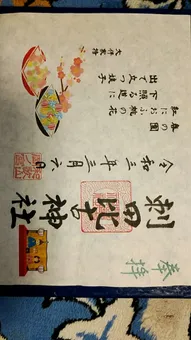 奉拝
刺田比古神社
令和三年三月六日
春の園
紅におふ桃の花
下照る道に
出て立つ娘子
大伴家持